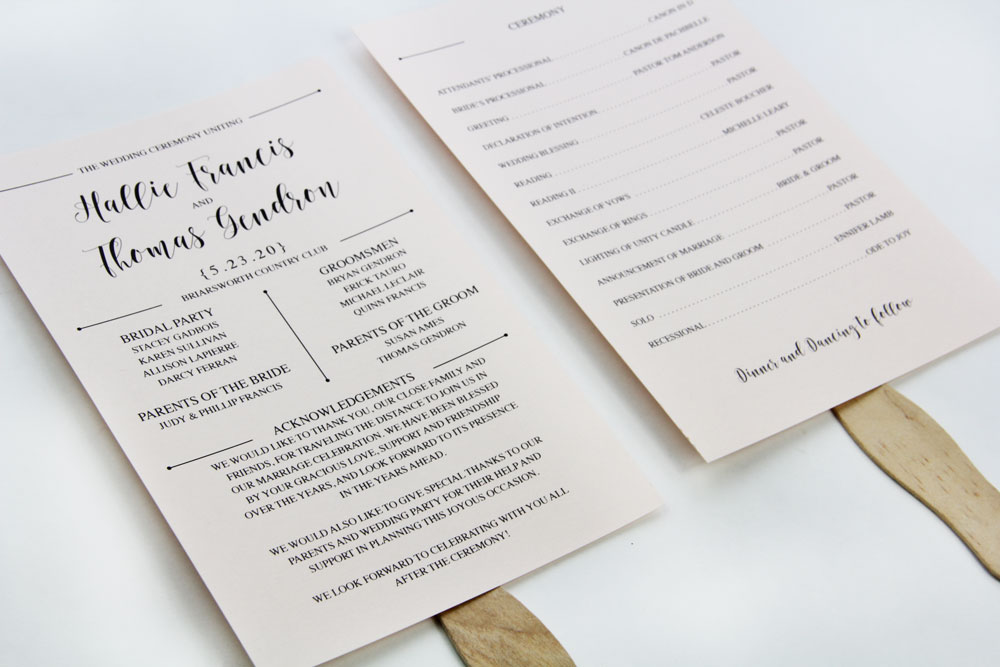 THE WEDDING CEREMONY UNITING
Hallie Francis
AND
Thomas Gendron
{5.23.20}
BRIARSWORTH COUNTRY CLUB
BRIDAL PARTY
STACEY GADBOIS
KAREN SULLIVAN
ALLISON LAPIERRE
DARCY FERRAN
PARENTS OF THE BRIDE
JUDY & PHILLIP FRANCIS
GROOMSMEN
BRYAN GENDRON
ERICK TAURO
MICHAEL LECLAIR
QUINN FRANCIS
PARENTS OF THE GROOM
SUSAN AMES
THOMAS GENDRON
ACKNOWLEDGEMENTS
WE WOULD LIKE TO THANK YOU, OUR CLOSE FAMILY AND
FRIENDS, FOR TRAVELING THE DISTANCE TO JOIN US IN
OUR MARRIAGE CELEBRATION. WE HAVE BEEN BLESSED
BY YOUR GRACIOUS LOVE, SUPPORT AND FRIENDSHIP
OVER THE YEARS, AND LOOK FORWARD TO ITS PRESENCE
IN THE YEARS AHEAD.
WE WOULD ALSO LIKE TO GIVE SPECIAL THANKS TO OUR
PARENTS AND WEDDING PARTY FOR THEIR HELP AND
SUPPORT IN PLANNING THIS JOYOUS OCCASION.
WE LOOK FORWARD TO CELEBRATING WITH YOU ALL
AFTER THE CEREMONY!
CEREMONY
ATTENDANTS' PROCESSIONAL CANON IN D
BRIDE'S PROCESSIONAL CANON DE PACHBELLE
GREETING PASTOR TOM ANDERSON
DECLARATION OF INTENTION PASTOR
WEDDING BLESSING PASTOR
READING CELESTE BOUCHER
READING II MICHELLE LEARY
EXCHANGE OF VOWS PASTOR
EXCHANGE OF RINGS PASTOR
LIGHTING OF UNITY CANDLE BRIDE & GROOM
ANNOUNCEMENT OF MARRIAGE PASTOR
PRESENTATION OF BRIDE AND GROOM PASTOR
SOLO ENNIFER LAMB
RECESSIONAL ODE TO JOY
Dinner and Dancing to follow